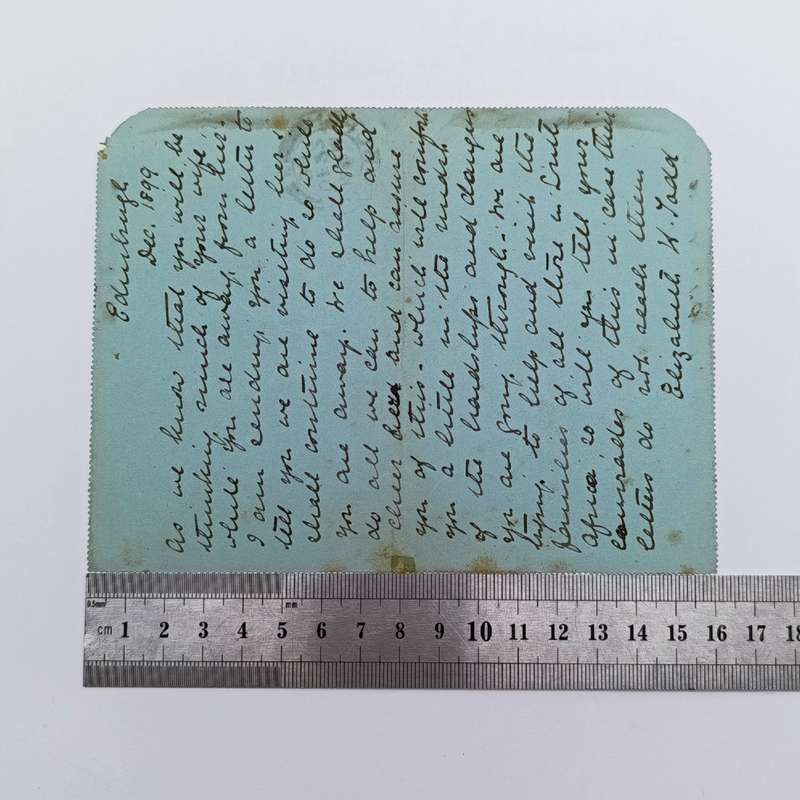 Edinburgh
Dec. 1899
As we know that you will be
thinking much of your wife
while you are away from her
I am sending you a letter to
tell you we are visiting her &
shall continue to do so while
you are away. We shall gladly
do all we can to help and
cheer her and can assure
you of this - which will comfort
you a little in the midst
of the hardships and dangers
you are going through. We are
trying to help and visit the
families of all those in South
Africa so will you tell your
comrades of this in case their
letters do not reach them
Elizabeth H. Todd
0.5mm
mm
cm 1 2 3 4 5 6 7 8 9 10 11 12 13 14 15 16 17 18